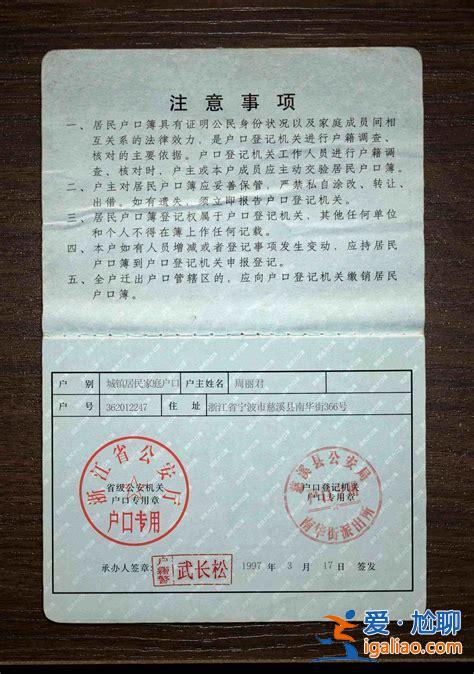 注意事项
一、居民户口簿具有证明公民身份状况以及家庭成员间相
互关系的法律效力，是户口登记机关进行户籍调查、
核对的主要依据。户口登记机关工作人员进行户籍调
查、核对时，户主或本户成员应主动交验居民户口簿。
二、户主对居民户口簿应妥善保管，严禁私自涂改、转让、
出借。如有遗失，须立即报告户口登记机关。
三、居民户口簿登记权属于户口登记机关，其他任何单位
和个人不得在簿上作任何记载。
四、本户如有人员增减或者登记事项发生变动，应持居民
户口簿到户口登记机关申报登记。
五、全户迁出户口管辖区的，应向户口登记机关缴销居民
户口簿。
户 别 城镇居民家庭户口 户主姓名 周丽君
户 号 362012247 住 址 浙江省宁波市慈溪县南华街366号
浙江省公安厅
省级公安机关
户口专用章
户口专用
慈溪县公安局
户口登记机关
户口专用章
南华街派出所
承办人签章： 户籍警 武长松 1997 年 3 月 17 日 签发
爱·尬聊
igaliao.com